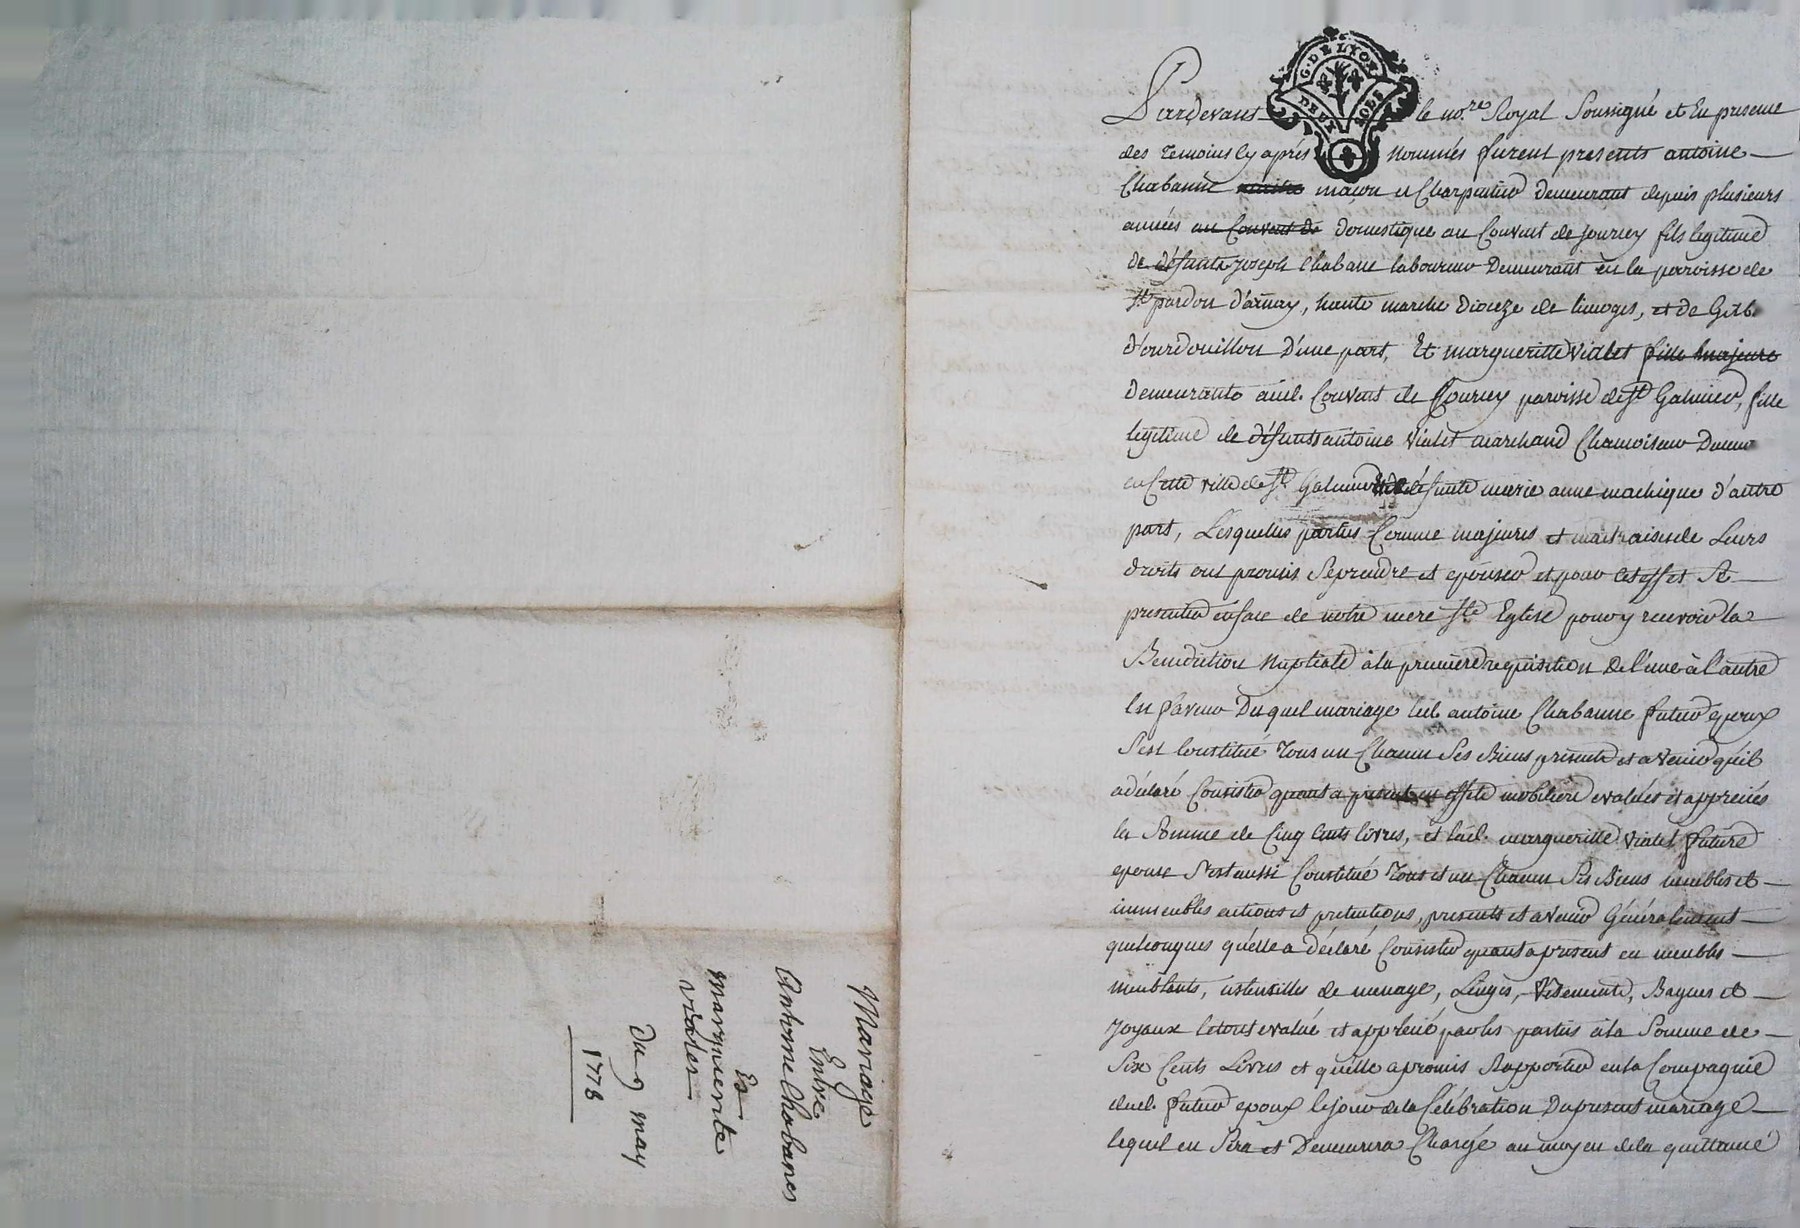 Mariage
Entre
Antoinne Chabanes
Et
marguerite
vialet
Du 9 may
1778
G. DE LYON
DEUX SOLS
Pardevant le no.re Royal Soussigné et En presence
des temoins Cy aprés nommés furent presents antoine
Chabanne maçon et Charpentier demeurant depuis plusieurs
années au Couvent de domestique au Couvent de Jourcey fils legitime
de défunts Joseph Chabane laboureur Demeurant en la paroisse de
St pardon d'arnay, haute marche Dioceze de limoges, et de Gilb.
d'ourdouillon D'une part, Et margueritte Vialet fille majeure
demeurante aud. Couvent de Jourcey paroisse de St Galmier, fille
legitime de défunts antoine Vialet marchand Chamoiseur Demeu
en Cette ville de St Galmier et de défunte marie anne machique d'autre
part, Lesquelles parties Comme majeures et maitraises de Leurs
droits ont promis Se prendre et epouser et pour Cet effet Se
presenter en face de notre mere Ste Eglise pour y recevoir la
Benediction Nuptiale à la premiere requisition de l'une à l'autre
En faveur Duquel mariage led. antoine Chabanne futur epoux
S'est Constitué Tous un Chacun Ses Biens presents et a Venir qu'il
a déclaré Consister quant a present en effets mobiliers evalués et appreciés
la Somme de Cinq Cents livres, et lad. margueritte Vialet future
epouse S'est aussi Constitué Tous et un Chacun Ses Biens meubles et
immeubles actions et pretentions, presents et a Venir Généralement
quelconques qu'elle a déclaré Consister quant a present en meubles
meublants, ustensilles de menage, Linges, Vetements, Bagues et
Joyaux le tout evalué et apprecié par les parties à la Somme de
Six Cents Livres et qu'elle a promis Rapporter en la Compagnie
dud. futur epoux le jour de la Célébration Du present mariage
lequel en Sera et Demeurera Chargé au moyen de la quittance